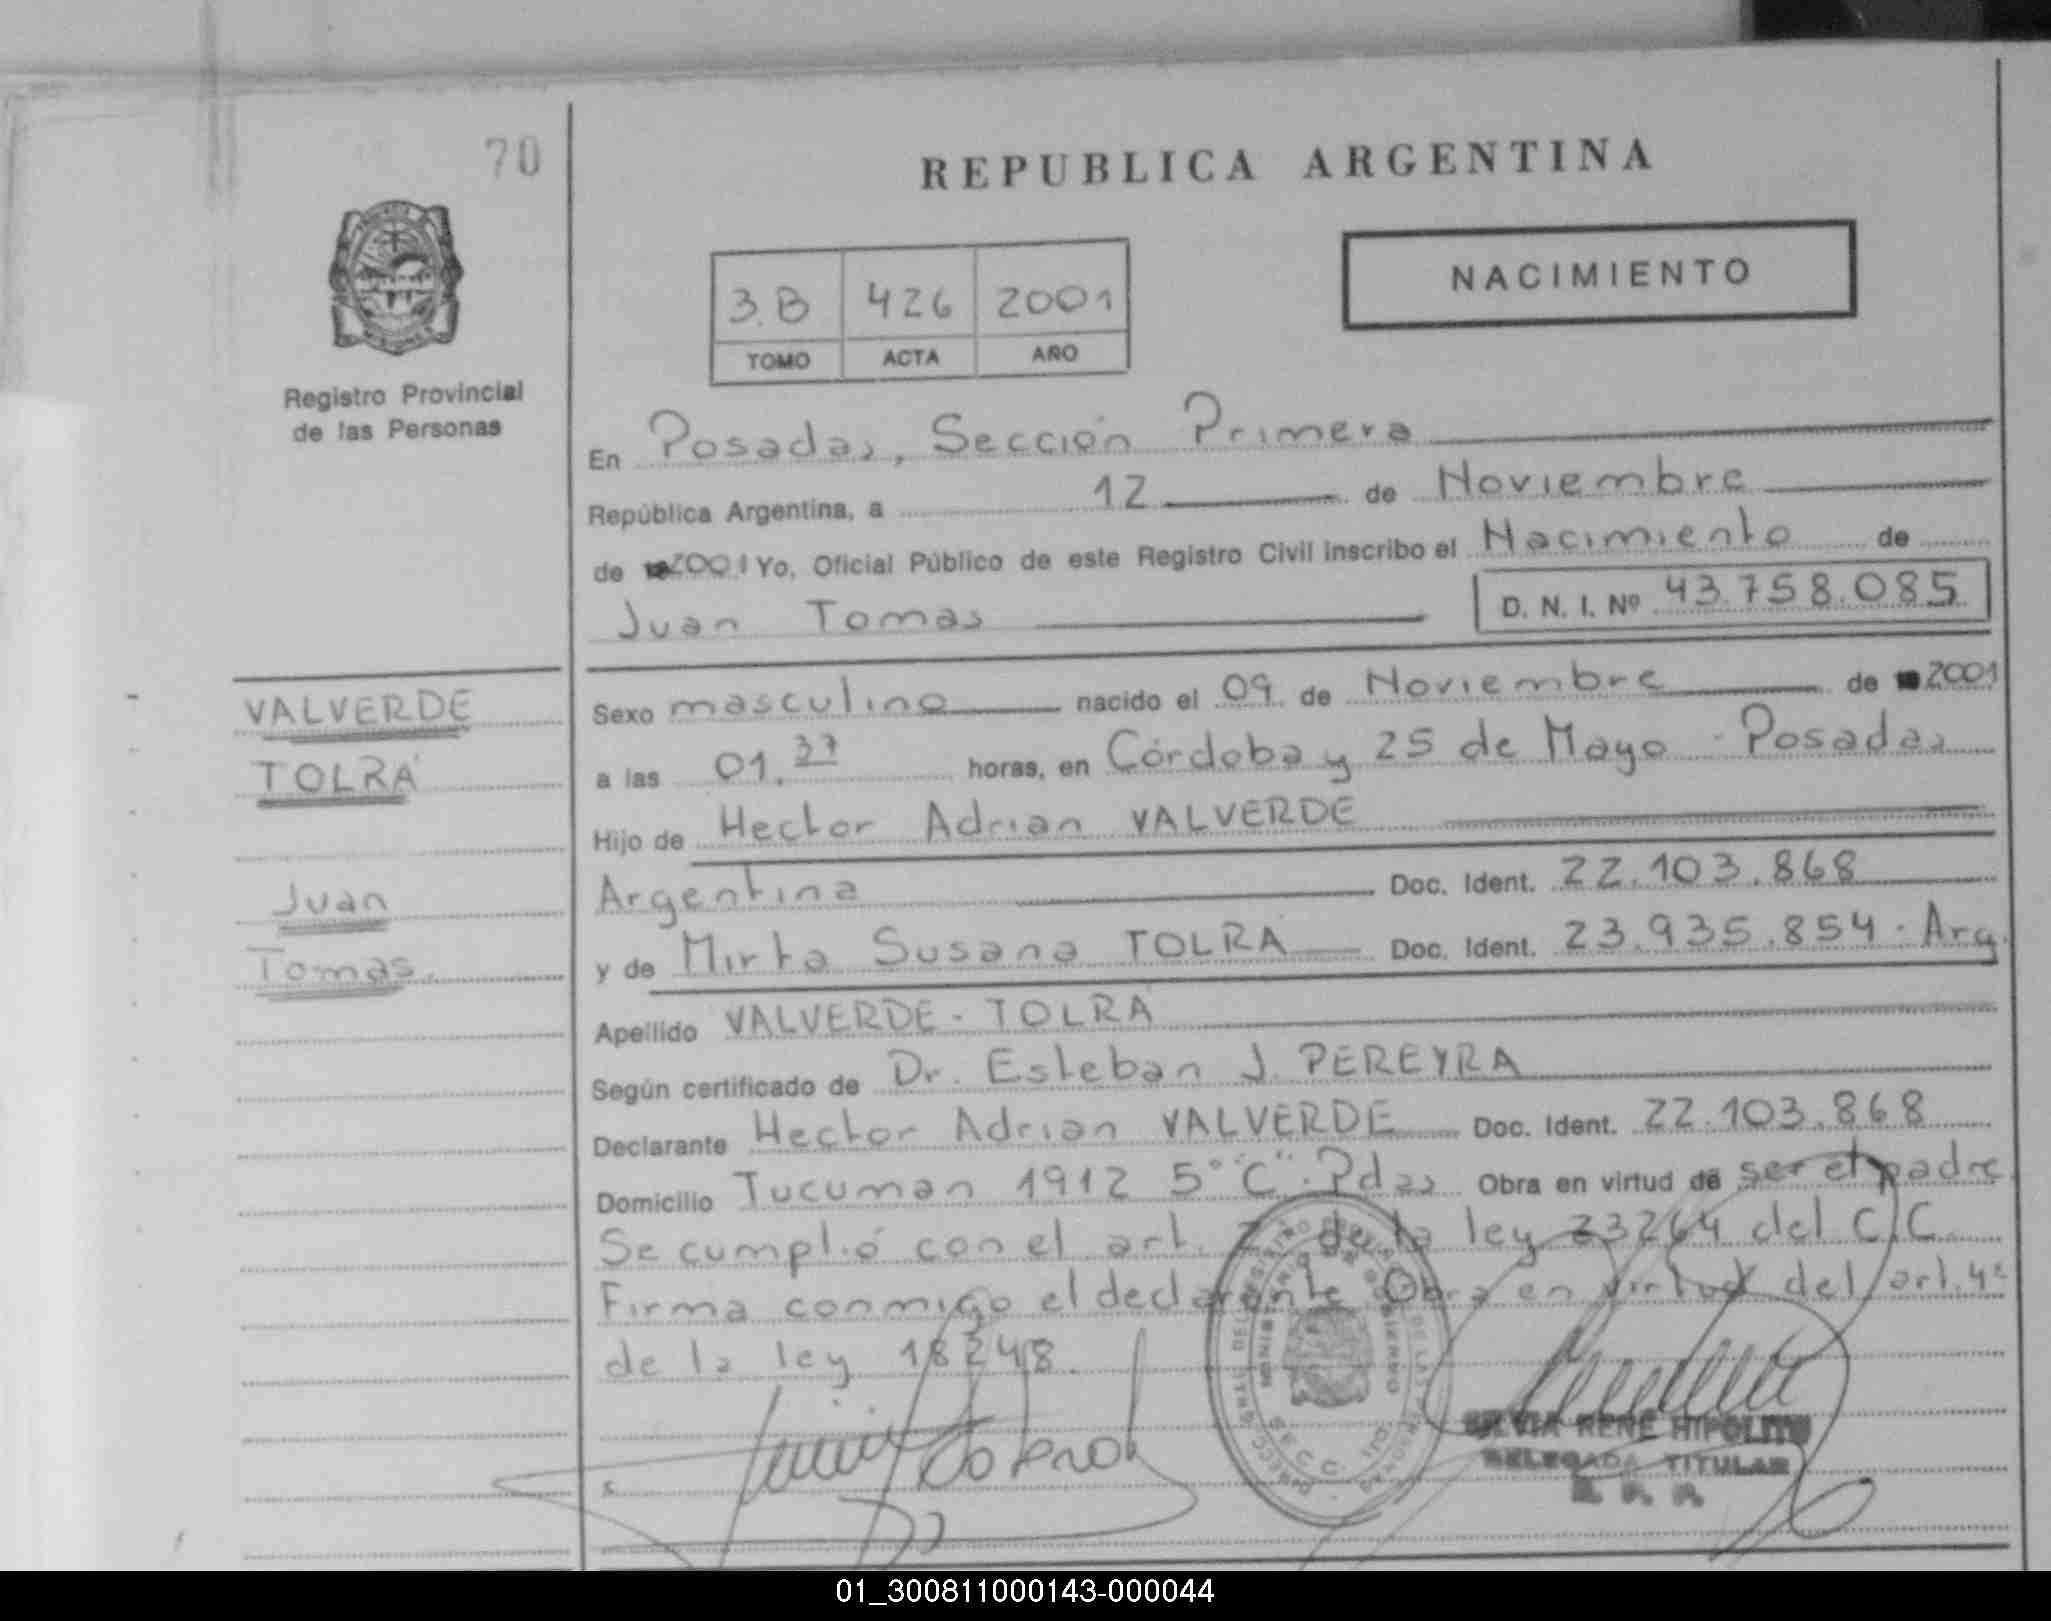 70
REPUBLICA ARGENTINA
NACIMIENTO
3.B 426 2001
TOMO ACTA AÑO
Registro Provincial
de las Personas
En Posadas, Sección Primera
República Argentina, a 12 de Noviembre
de 2001 Yo, Oficial Público de este Registro Civil inscribo el Nacimiento de
Juan Tomas D. N. I. Nº 43.758.085
VALVERDE
TOLRÁ
Juan
Tomas.
Sexo masculino nacido el 09 de Noviembre de 2001
a las 01.37 horas, en Córdoba y 25 de Mayo - Posadas
Hijo de Hector Adrian VALVERDE
Argentina Doc. Ident. 22.103.868
y de Mirta Susana TOLRA Doc. Ident. 23.935.854 - Arg.
Apellido VALVERDE - TOLRÁ
Según certificado de Dr. Esteban J. PEREYRA
Declarante Hector Adrian VALVERDE Doc. Ident. 22.103.868
Domicilio Tucuman 1912 5° "C" - Pdas Obra en virtud de ser el padre
Se cumplió con el art. 2 de la ley 23264 del C.C.
Firma conmigo el declarante Obra en virtud del art. 4º
de la ley 18248.
SILVIA RENE HIPOLITO
DELEGADA TITULAR
R. P. P.
01_300811000143-000044